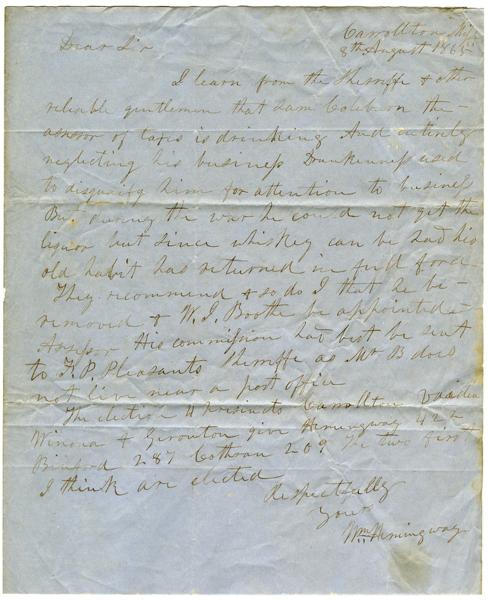 Carrollton Mi
8th August 1865
Dear Sir
I learn from the Sherriffe & other
reliable gentlemen that Sam the
assessor of taxes is drinking And entirely
neglecting his business Drunkenness used
to disqualify him for attention to business
But during the war he could not get the
liquor but since whiskey can be had his
old habit has returned in full force
They recommend & so do I that he be
removed & W. J. Boothe be appointed
Assessor His commission had best be sent
to K. P. Pleasants Sherriffe as Mr B does
not live near a post office
The election 4 precincts Carrollton Vaiden
Winona & give Hemingway 424
Binford 287 Cothran 269 The two first
I think are elected
Respectfully
Yours
Wm Hemingway